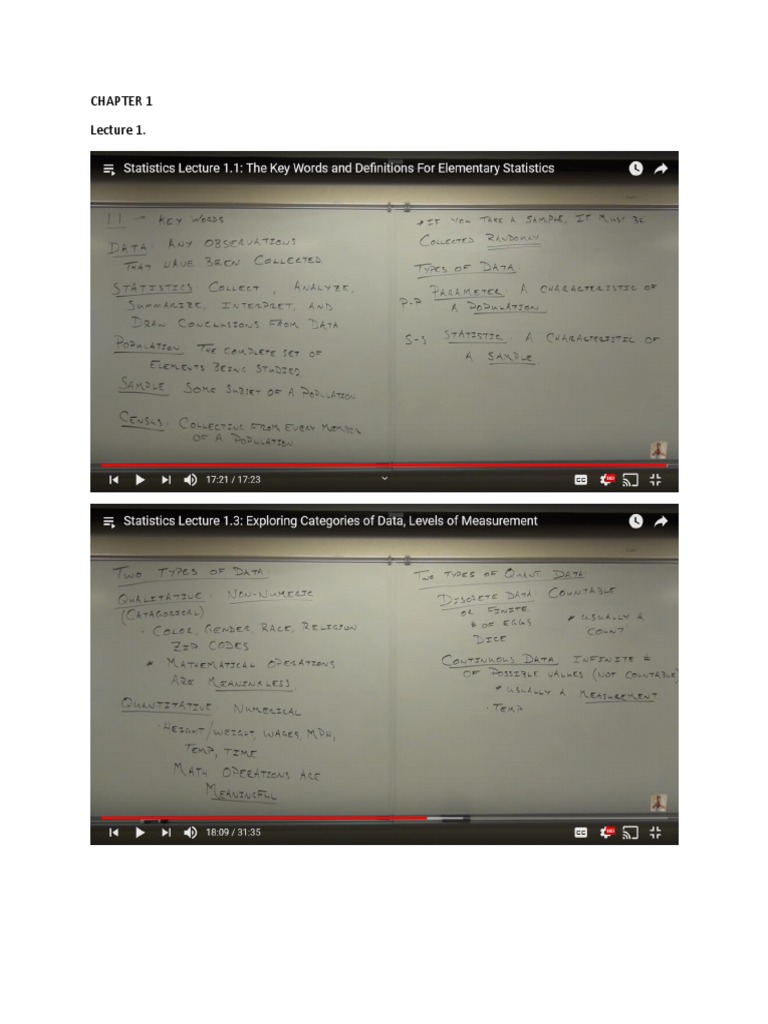 CHAPTER 1
Lecture 1.
Statistics Lecture 1.1: The Key Words and Definitions For Elementary Statistics
1.1 → KEY WORDS
DATA: ANY OBSERVATIONS
THAT HAVE BEEN COLLECTED
STATISTICS: COLLECT, ANALYZE,
SUMMARIZE, INTERPRET, AND
DRAW CONCLUSIONS FROM DATA
POPULATION: THE COMPLETE SET OF
ELEMENTS BEING STUDIED
SAMPLE: SOME SUBSET OF A POPULATION
CENSUS: COLLECTING FROM EVERY MEMBER
OF A POPULATION
* IF YOU TAKE A SAMPLE, IT MUST BE
COLLECTED RANDOMLY
TYPES OF DATA:
P-P PARAMETER: A CHARACTERISTIC OF
A POPULATION
S-S STATISTIC: A CHARACTERISTIC OF
A SAMPLE
17:21 / 17:23
CC
HD
Statistics Lecture 1.3: Exploring Categories of Data, Levels of Measurement
TWO TYPES OF DATA:
QUALITATIVE: NON-NUMERIC
(CATAGORICAL)
· COLOR, GENDER, RACE, RELIGION
ZIP CODES
* MATHEMATICAL OPERATIONS
ARE MEANINGLESS
QUANTITATIVE: NUMERICAL
· HEIGHT/WEIGHT, WAGES, MPH,
TEMP, TIME
MATH OPERATIONS ARE
MEANINGFUL
TWO TYPES OF QUANT. DATA:
DISCRETE DATA: COUNTABLE
OR FINITE
# OF EGGS
DICE
* USUALLY A
"COUNT"
CONTINUOUS DATA: INFINITE #
OF POSSIBLE VALUES (NOT COUNTABLE)
* USUALLY A MEASUREMENT
· TEMP
18:09 / 31:35
CC
HD